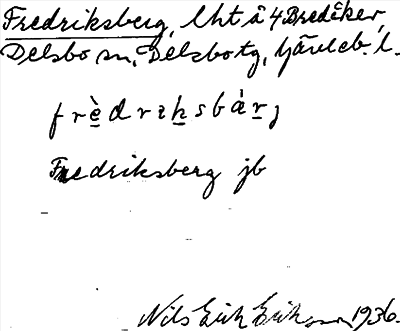 Fredriksberg, lht å 4 Bredåker,
Delsbo sn, Delsbo tg, Gävleb. l.
frèdrıksbàrj
Fredriksberg jb
Nils Erik Erikson 1936.